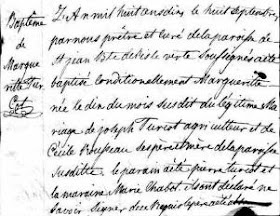 Baptême
de
Margue
ritte Tur
Cot
L'An mil huit cens dix le huit Septembre
par nous prêtre et curé de la paroisse de
St jean Bte de l'isle verte Soussigné a été
baptisé conditionnellement Marguerite
née le dix du mois susdit du légitime Ma
riage de joseph Turcot agriculteur et de
Cécile Rousseau ses père et mère de la paroisse
Susditte le parain a été pierre turcot et
la maraine Marie Chabot qui ont déclaré ne
Savoir Signer de ce Requis lecture faite